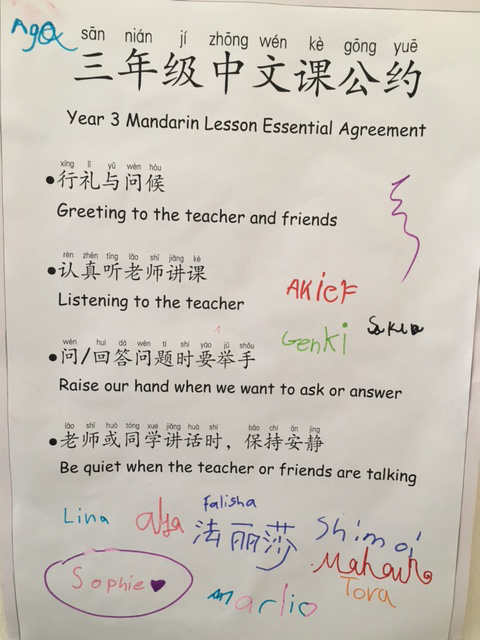 sān nián jí zhōng wén kè gōng yuē
三年级中文课公约
Year 3 Mandarin Lesson Essential Agreement
xíng lǐ yǔ wèn hòu
●行礼与问候
Greeting to the teacher and friends
rèn zhēn tīng lǎo shī jiǎng kè
●认真听老师讲课
Listening to the teacher
AKieF
Genki
wèn huí dá wèn tí shí yào jǔ shǒu
●问/回答问题时要举手
Raise our hand when we want to ask or answer
lǎo shī huò tóng xué jiǎng huà shí bǎo chí ān jìng
●老师或同学讲话时，保持安静
Be quiet when the teacher or friends are talking
Falisha
Lina
法丽莎
Sophie
Marlio
Tora